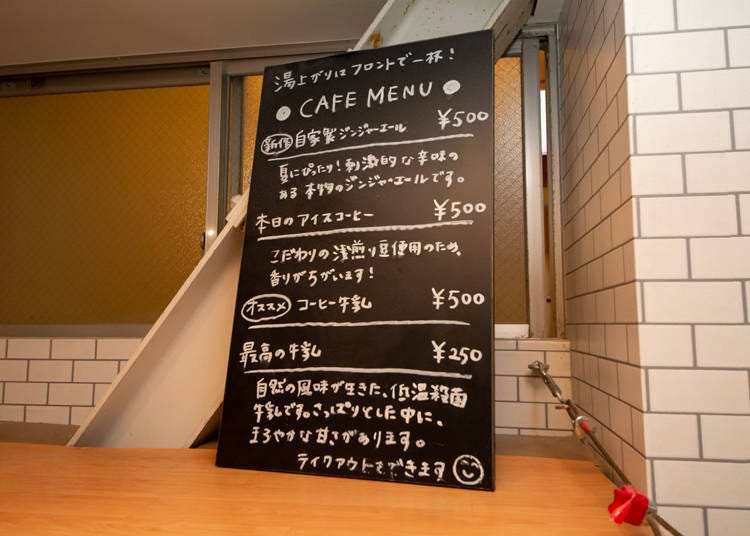 湯上がりはフロントで一杯!
CAFE MENU
新作 自家製ジンジャーエール ¥500
夏にぴったり!刺激的な辛味の
ある本物のジンジャーエールです。
本日のアイスコーヒー ¥500
こだわりの浅煎り豆使用のため、
香りがちがいます!
オススメ コーヒー牛乳 ¥500
最高の牛乳 ¥250
自然の風味が生きた、低温殺菌
牛乳です。さっぱりとした中に、
まろやかな甘さがあります。
テイクアウトもできます